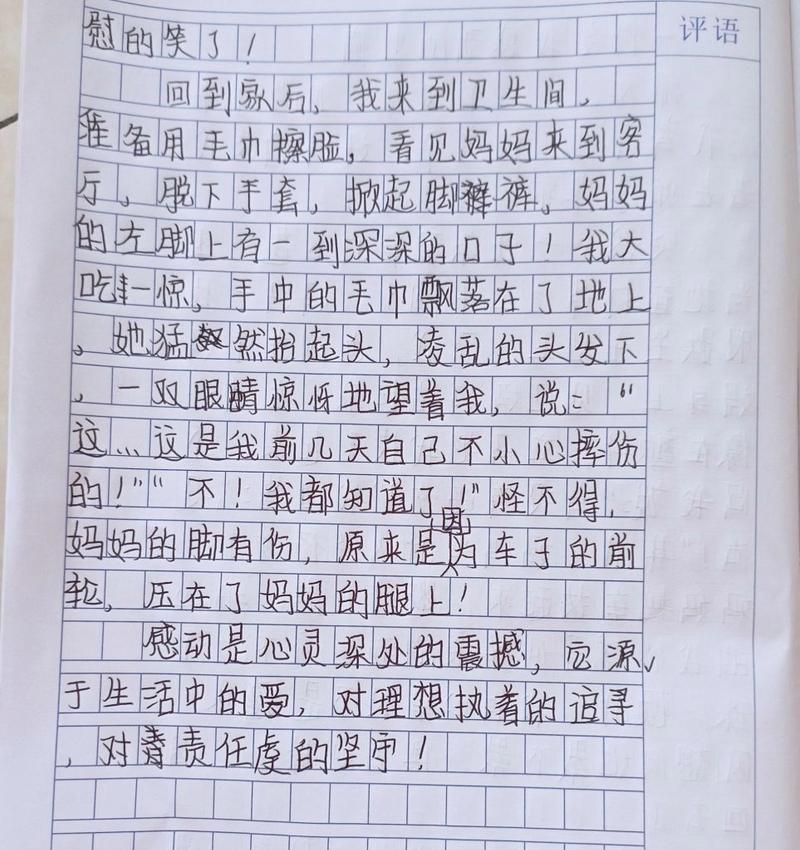 评语
慰的笑了!
回到家后,我来到卫生间,
准备用毛巾擦脸,看见妈妈来到客
厅,脱下手套,掀起脚裤裤,妈妈
的左脚上有一到深深的口子!我大
吃一惊,手中的毛巾飘落在了地上
,她猛然抬起头,凌乱的头发下
,一双眼睛惊惊讶地望着我,说:“
这...这是我前几天自己不小心摔伤
的!”“不!我都知道了!”怪不得,
妈妈的脚有伤,原来是因为车子的前
轮,压在了妈妈的腿上!
感动是心灵深处的震撼,它源
于生活中的爱,对理想执着的追寻
,对责任虔的坚守!